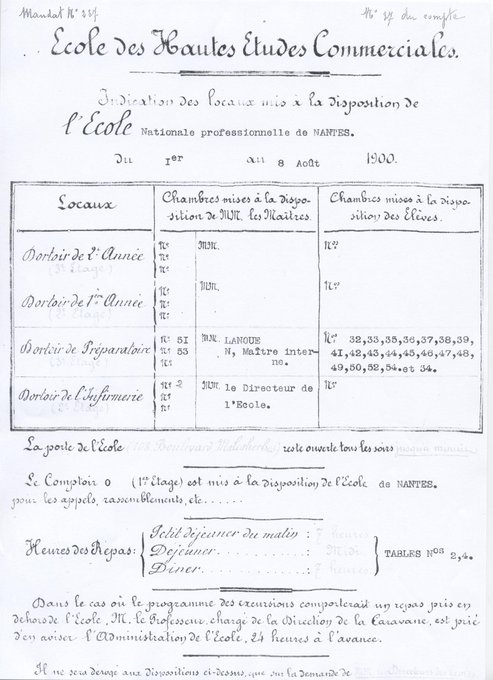 Mandat Nº 227
Nº 27 du compte
Ecole des Hautes Etudes Commerciales.
Indication des locaux mis à la disposition de
l'Ecole Nationale professionnelle de NANTES.
du Ier au 8 Août 1900.
Locaux
Chambres mises à la dispo-
sition de MM. les Maîtres.
Chambres mises à la dispo-
sition des Elèves.
Dortoir de 2e Année
(3e Etage)
Nº MM. Nos
Nº
Nº
Dortoir de 1ère Année
(2e Etage)
Nº MM. Nos
Nº
Nº
Dortoir de Préparatoire
Nº 51 MM. LANOUE
Nº 53 N, Maître inter-
ne.
Nº
Nos 32,33,35,36,37,38,39,
41,42,43,44,45,46,47,48,
49,50,52,54. et 34.
Dortoir de l'Infirmerie
Nº 2 MM. le Directeur de
l'Ecole.
Nº
Nº
Nos
La porte de l'Ecole (108, Boulevard Malesherbes) reste ouverte tous les soirs jusqu'à minuit.
Le Comptoir O (1er Etage) est mis à la disposition de l'Ecole de NANTES.
pour les appels, rassemblements, etc......
Heures des Repas:
Petit déjeuner du matin : 7 heures
Déjeuner.......... : Midi
Dîner............ : 7 heures
TABLES Nos 2,4.
Dans le cas où le programme des excursions comporterait un repas pris en
dehors de l'Ecole, M. le Professeur, chargé de la Direction de la Caravane, est prié
d'en aviser l'Administration de l'Ecole, 24 heures à l'avance.
Il ne sera dérogé aux dispositions ci-dessus, que sur la demande de